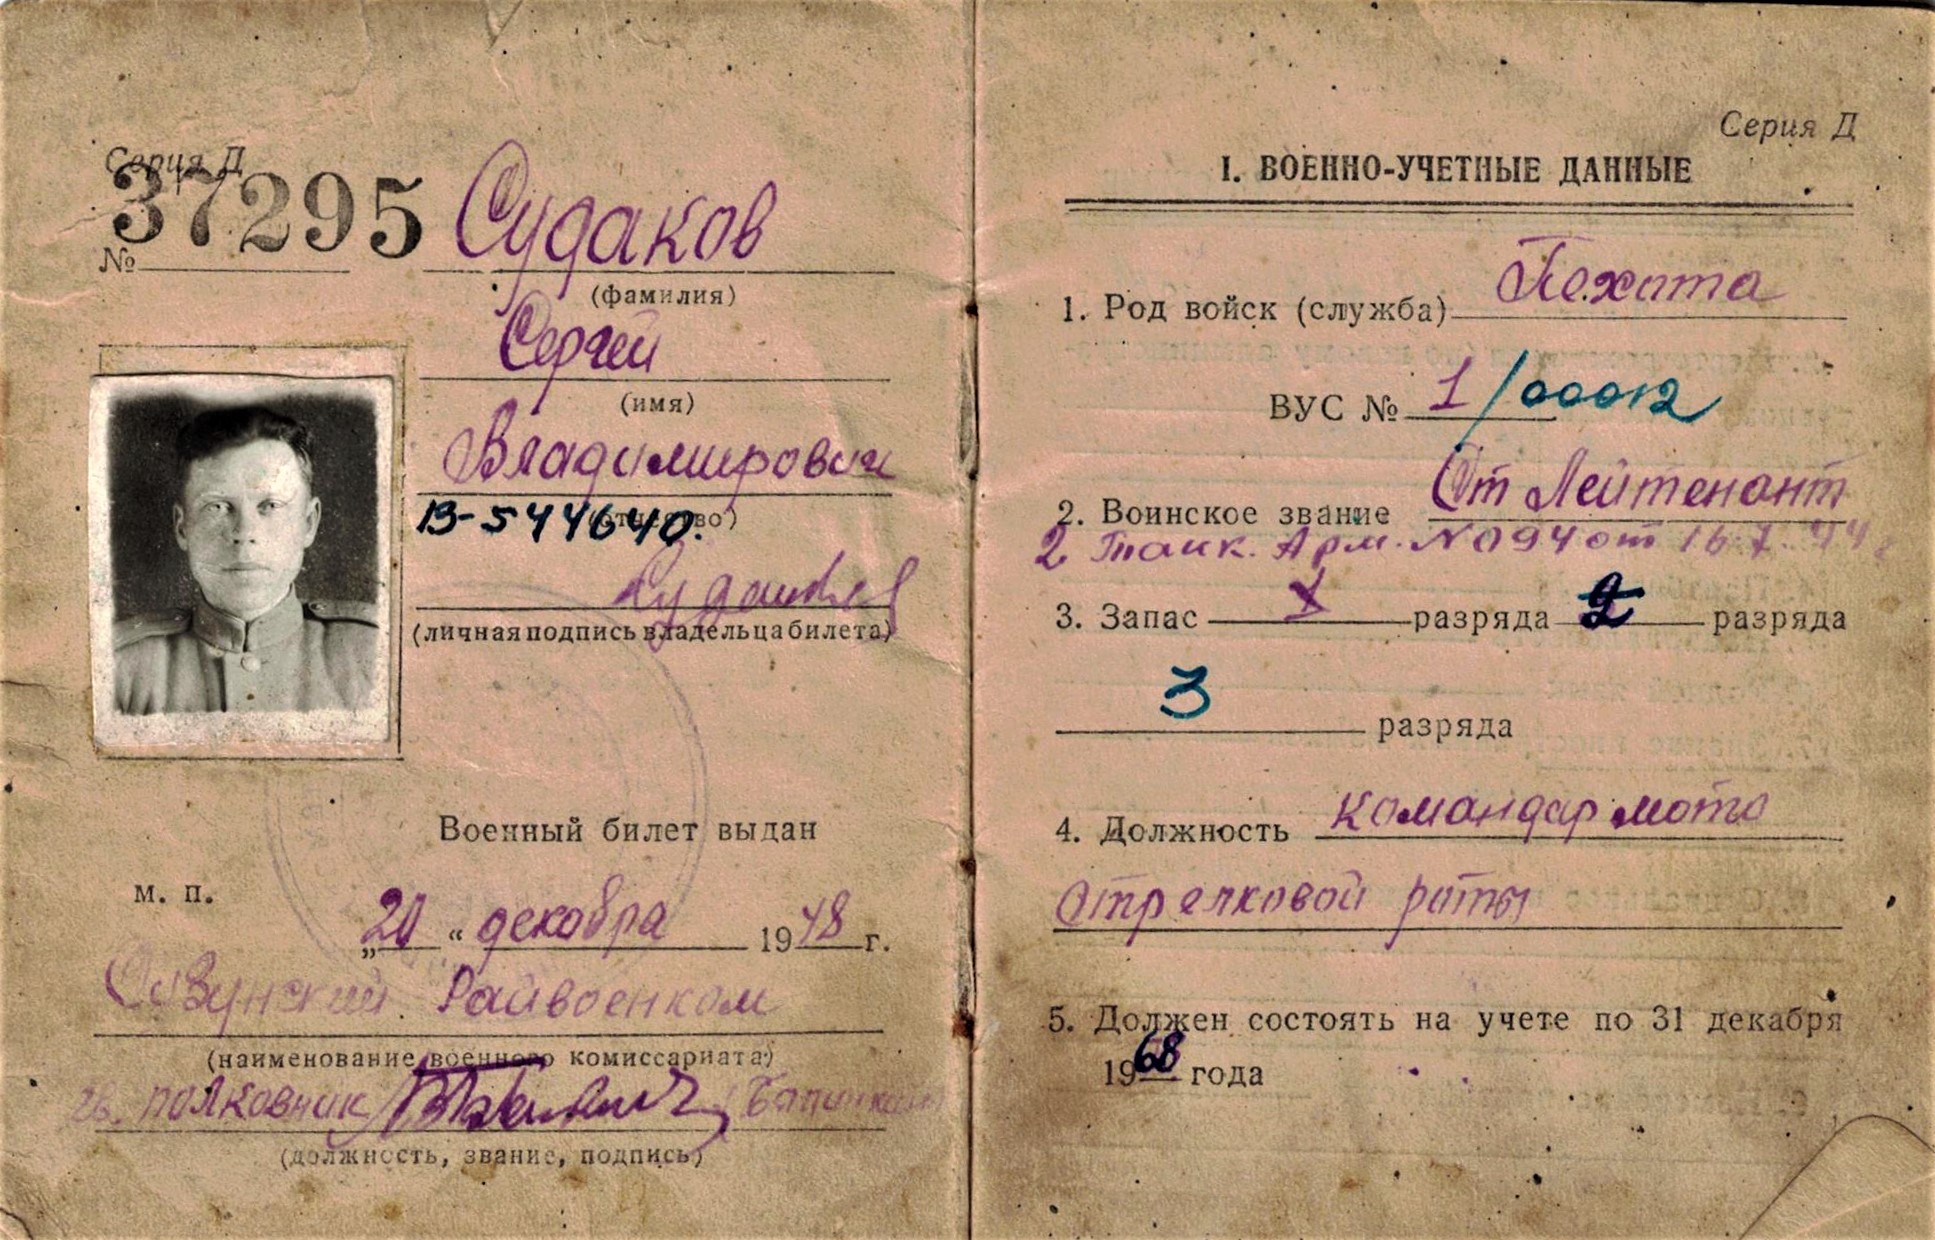 Серия Д
37295
№
Судаков
(фамилия)
Сергей
(имя)
Владимирович
(отчество)
В-544640.
(личная подпись владельца билета)
Военный билет выдан
м. п.
„20 “ декабря 1948 г.
Сузунский Райвоенком
(наименование военного комиссариата)
полковник
(должность, звание, подпись)
Серия Д
I. ВОЕННО-УЧЕТНЫЕ ДАННЫЕ
1. Род войск (служба) Пехота
ВУС № 1/00012
2. Воинское звание Ст Лейтенант
2 Танк. Арм. № 094 от 16.7.44г
3. Запас 1 разряда 2 разряда
3 разряда
4. Должность командир мото
стрелковой роты
5. Должен состоять на учете по 31 декабря
1968 года